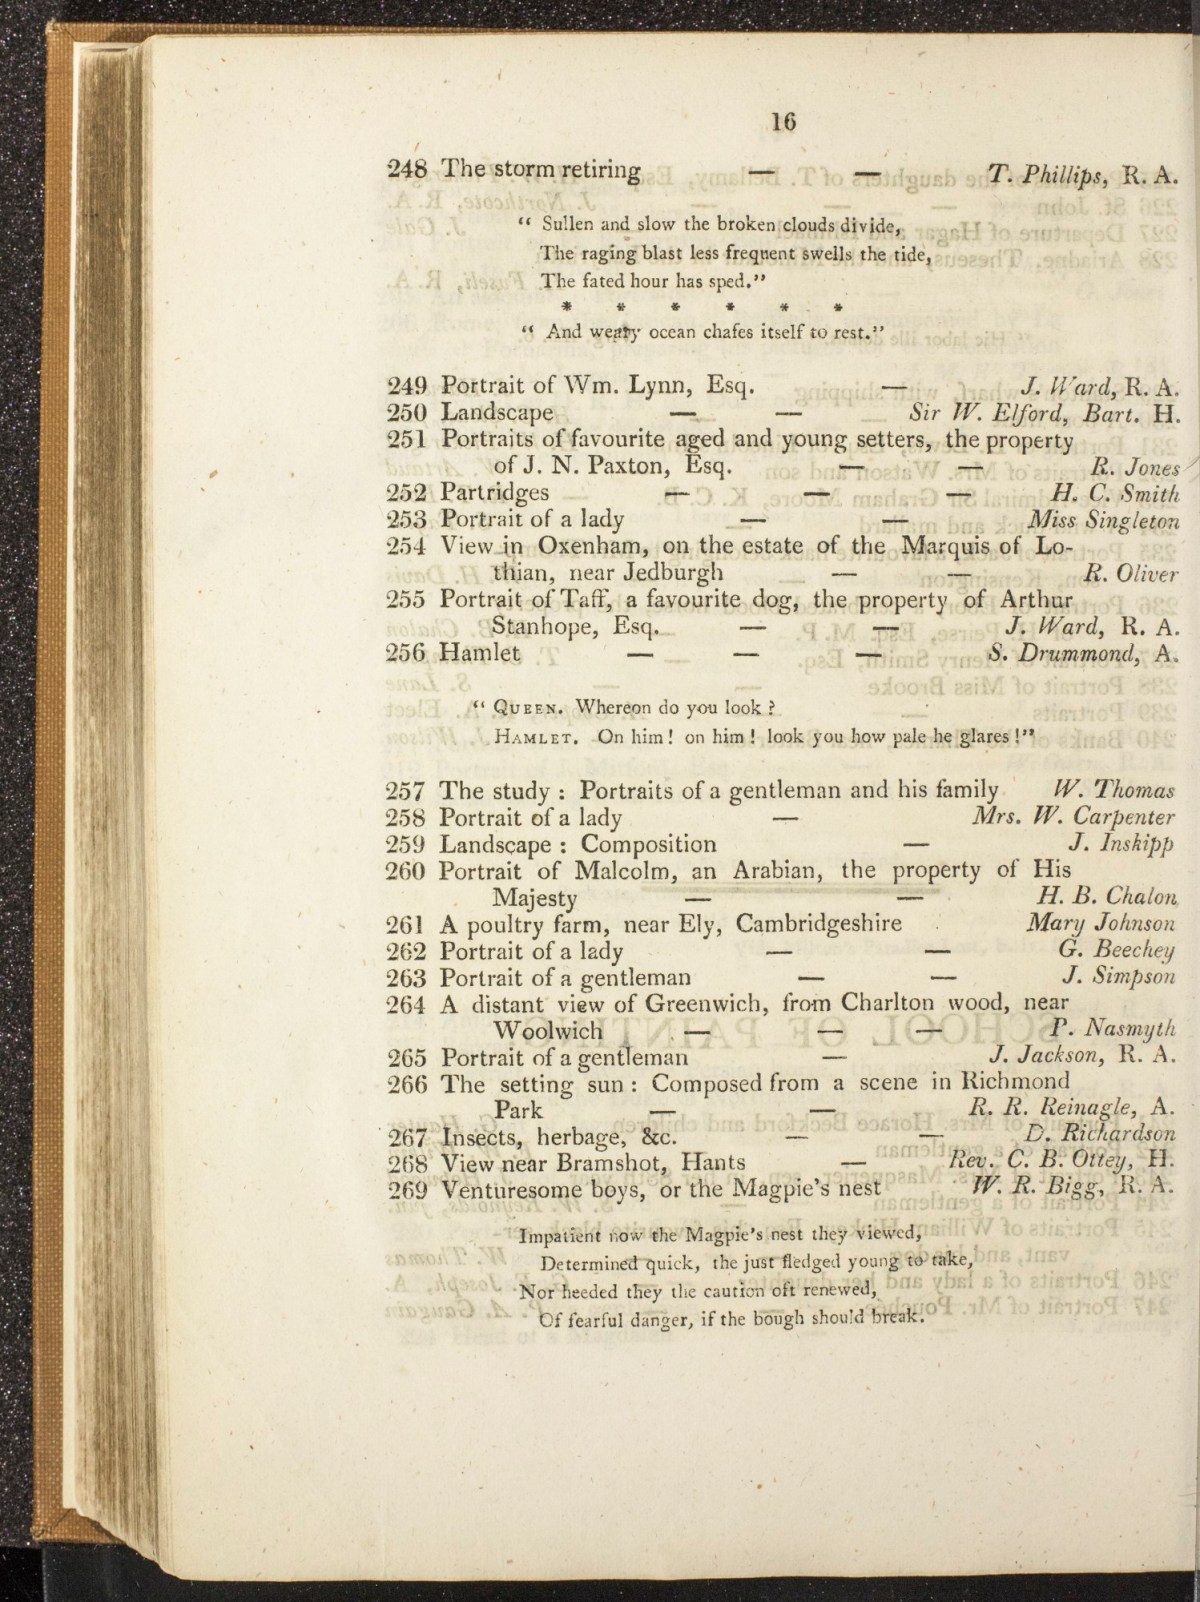 16
248 The storm retiring — — T. Phillips, R. A.
“ Sullen and slow the broken clouds divide,
The raging blast less frequent swells the tide,
The fated hour has sped.”
* * * * * *
“ And weary ocean chafes itself to rest.”
249 Portrait of Wm. Lynn, Esq. — J. Ward, R. A.
250 Landscape — — Sir W. Elford, Bart. H.
251 Portraits of favourite aged and young setters, the property
of J. N. Paxton, Esq. — — R. Jones
252 Partridges — — — H. C. Smith
253 Portrait of a lady — — Miss Singleton
254 View in Oxenham, on the estate of the Marquis of Lo-
thian, near Jedburgh — — R. Oliver
255 Portrait of Taff, a favourite dog, the property of Arthur
Stanhope, Esq. — — J. Ward, R. A.
256 Hamlet — — — S. Drummond, A.
“ QUEEN. Whereon do you look ?
HAMLET. On him ! on him ! look you how pale he glares !”
257 The study : Portraits of a gentleman and his family W. Thomas
258 Portrait of a lady — Mrs. W. Carpenter
259 Landscape : Composition — J. Inskipp
260 Portrait of Malcolm, an Arabian, the property of His
Majesty — — H. B. Chalon
261 A poultry farm, near Ely, Cambridgeshire Mary Johnson
262 Portrait of a lady — — G. Beechey
263 Portrait of a gentleman — — J. Simpson
264 A distant view of Greenwich, from Charlton wood, near
Woolwich — — — P. Nasmyth
265 Portrait of a gentleman — J. Jackson, R. A.
266 The setting sun : Composed from a scene in Richmond
Park — — R. R. Reinagle, A.
267 Insects, herbage, &c. — — D. Richardson
268 View near Bramshot, Hants — Rev. C. B. Ottey, H.
269 Venturesome boys, or the Magpie’s nest W. R. Bigg, R. A.
Impatient now the Magpie’s nest they viewed,
Determined quick, the just fledged young to take,
Nor heeded they the caution oft renewed,
Of fearful danger, if the bough should break.